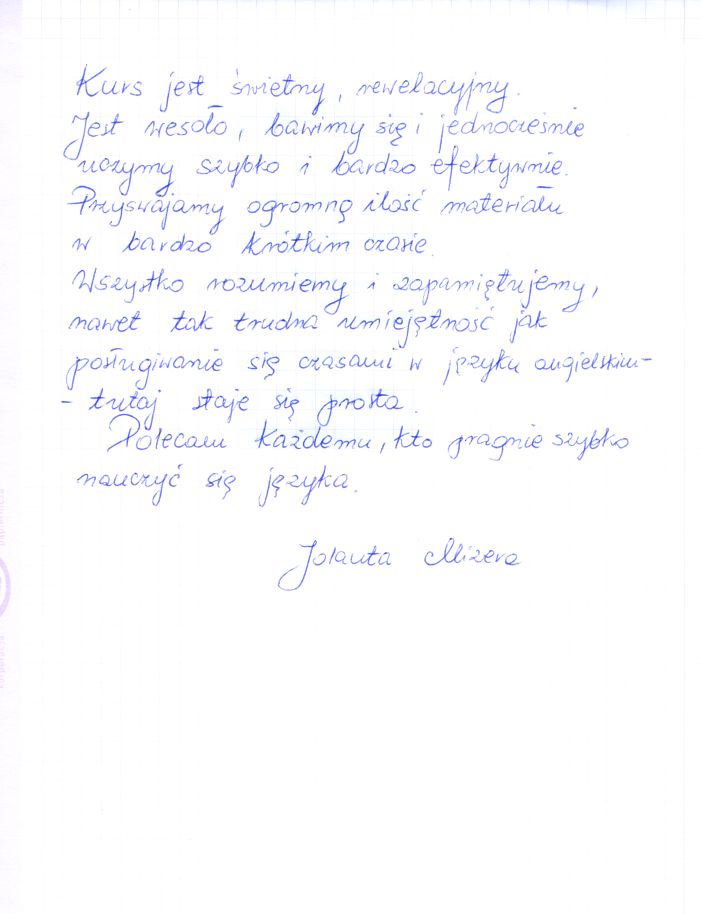 Kurs jest świetny, rewelacyjny.
Jest wesoło, bawimy się i jednocześnie
uczymy szybko i bardzo efektywnie.
Przyswajamy ogromną ilość materiału
w bardzo krótkim czasie.
Wszystko rozumiemy i zapamiętujemy,
nawet tak trudna umiejętność jak
posługiwanie się czasami w języku angielskim-
- tutaj staje się prosta.
Polecam każdemu, kto pragnie szybko
nauczyć się języka.
Jolanta Mizera